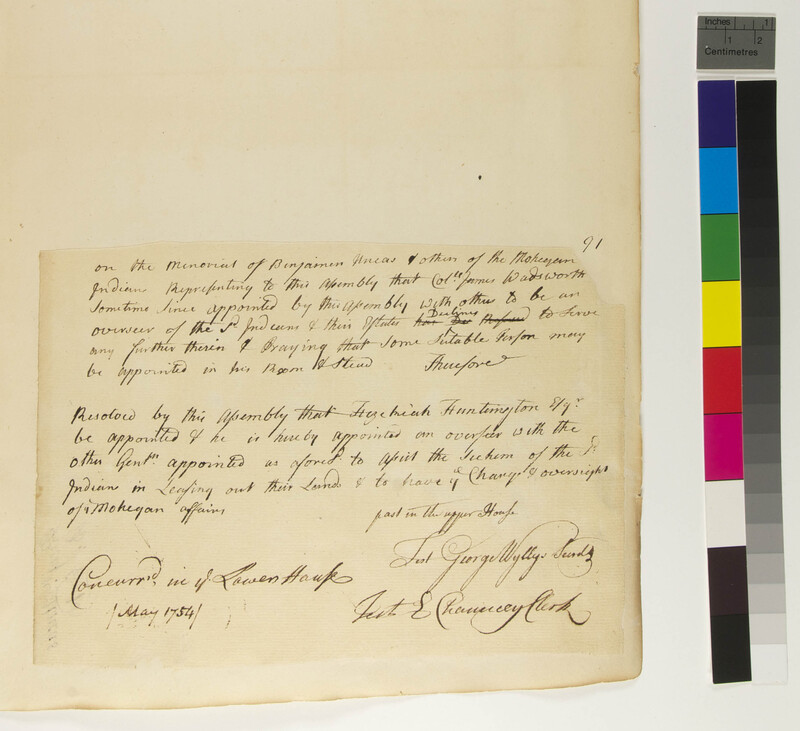 Inches 1
1 2
Centimetres
91
on the memorial of Benjamin Uncas & others of the Mohegan
Indians Representing to this Assembly that Col.ll James Wadsworth
Sometime Since appointed by this Assembly with others to be an
overseer of the Sd Indians & their Estates has Declines Refused to Serve
any further therein & Praying that Some Sutable Person may
be appointed in his Room & Stead Therefore
Resolved by this Assembly that Hezekiah Huntington Esqr
be appointed & he is hereby appointed an overseer with the
other Gentn appointed as aforesd to assist the Sechem of the Sd
Indians in Leasing out their Lands & to have ye Charge & oversight
of ye Mohegan affairs
past in the upper House
Test George Wyllys Secrety
Concurrd in ye Lower House
Test E Chauncey Clerk
[May 1754]